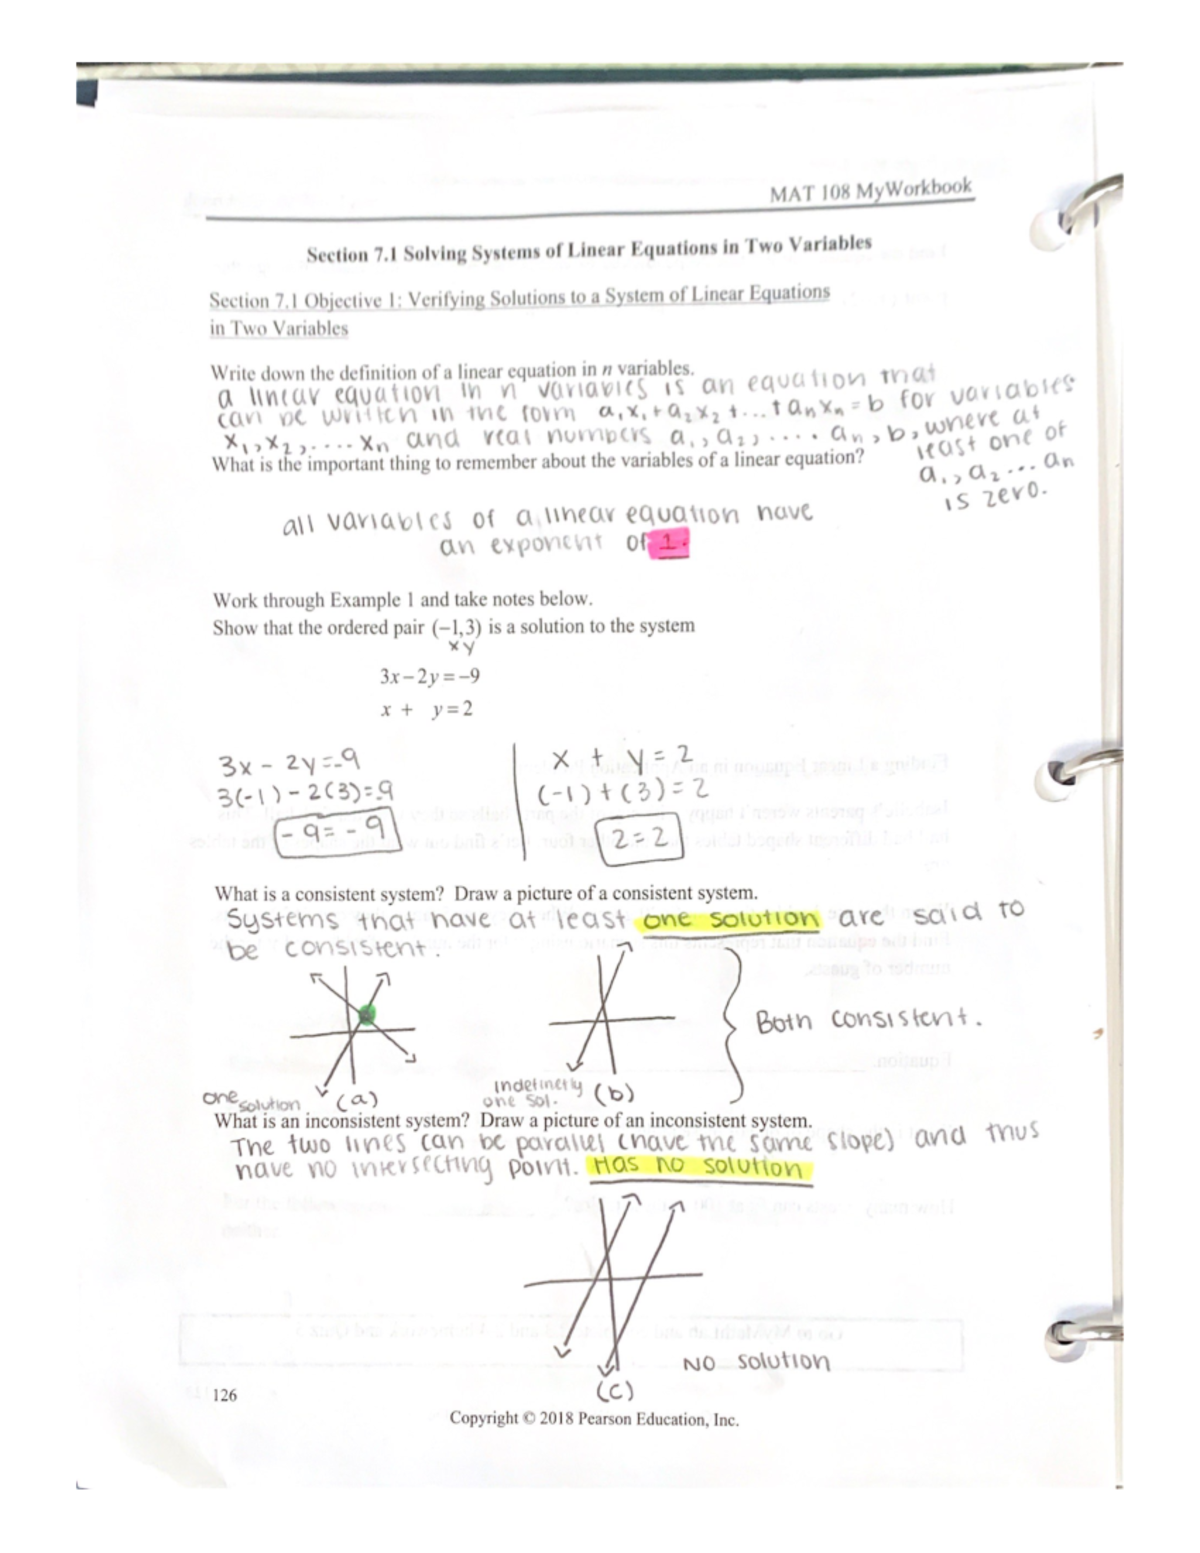 MAT 108 MyWorkbook
Section 7.1 Solving Systems of Linear Equations in Two Variables
Section 7.1 Objective 1: Verifying Solutions to a System of Linear Equations
in Two Variables
Write down the definition of a linear equation in n variables.
a linear equation in n variables is an equation that
can be written in the form a₁x₁+a₂x₂+...+aₙxₙ=b for variables
x₁,x₂,....xₙ and real numbers a₁,a₂,....aₙ,b, where at
least one of
a₁,a₂...aₙ
is zero.
What is the important thing to remember about the variables of a linear equation?
all variables of a linear equation have
an exponent of 1.
Work through Example 1 and take notes below.
Show that the ordered pair (−1,3) is a solution to the system
x y
3x−2y=−9
x + y=2
3x - 2y=-9
3(-1)-2(3)=-9
-9=-9
x + y=2
(-1)+(3)=2
2=2
What is a consistent system? Draw a picture of a consistent system.
Systems that have at least one solution are said to
be consistent.
Both consistent.
one solution
(a)
indefinetly
one sol.
(b)
What is an inconsistent system? Draw a picture of an inconsistent system.
The two lines can be parallel (have the same slope) and thus
have no intersecting point. Has no solution
No solution
(c)
126
Copyright © 2018 Pearson Education, Inc.